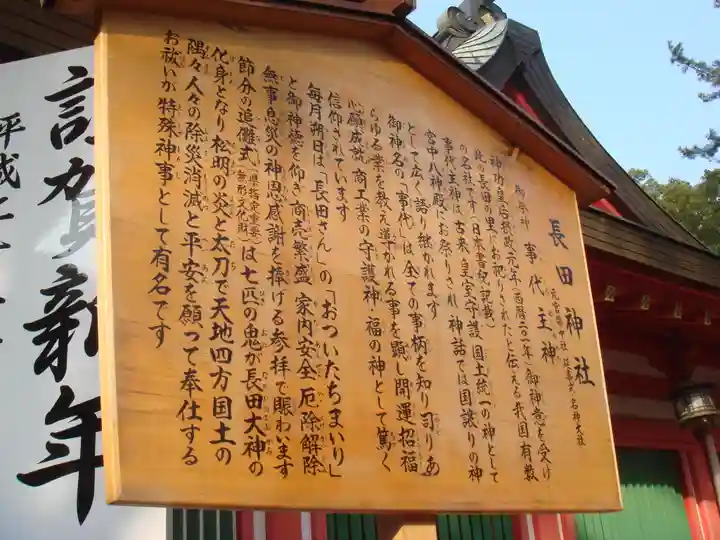 長田神社
元官幣中社 延喜式名神大社
御祭神 事代主神
神功皇后摂政元年(西暦二〇一年)御神意を受け
此の長田の里にお祀りされたと伝える我国有数
の名社です(日本書紀記載)
事代主神は、古来、皇室守護、国土統一の神として
宮中八神殿にお祭りされ、神話では国譲りの神
として広く語り継がれます
御神名の「事代」は全ての事柄を知り司りあ
らゆる業を教え導かれる事を顕し開運招福
心願成就、商工業の守護神・福の神として篤く
信仰されています
毎月朔日は「長田さん」の「おついたちまいり」
と御神徳を仰ぎ商売繁盛 家内安全 厄除解除
無事息災の神恩感謝を捧げる参拝で賑わいます
節分の追儺式(県指定重要無形文化財)は七匹の鬼が長田大神の
化身となり松明の炎と太刀で天地四方国土の
隅々人々の除災消滅と平安を願って奉仕する
お祓いが特殊神事として有名です
謹賀新年
平成二十